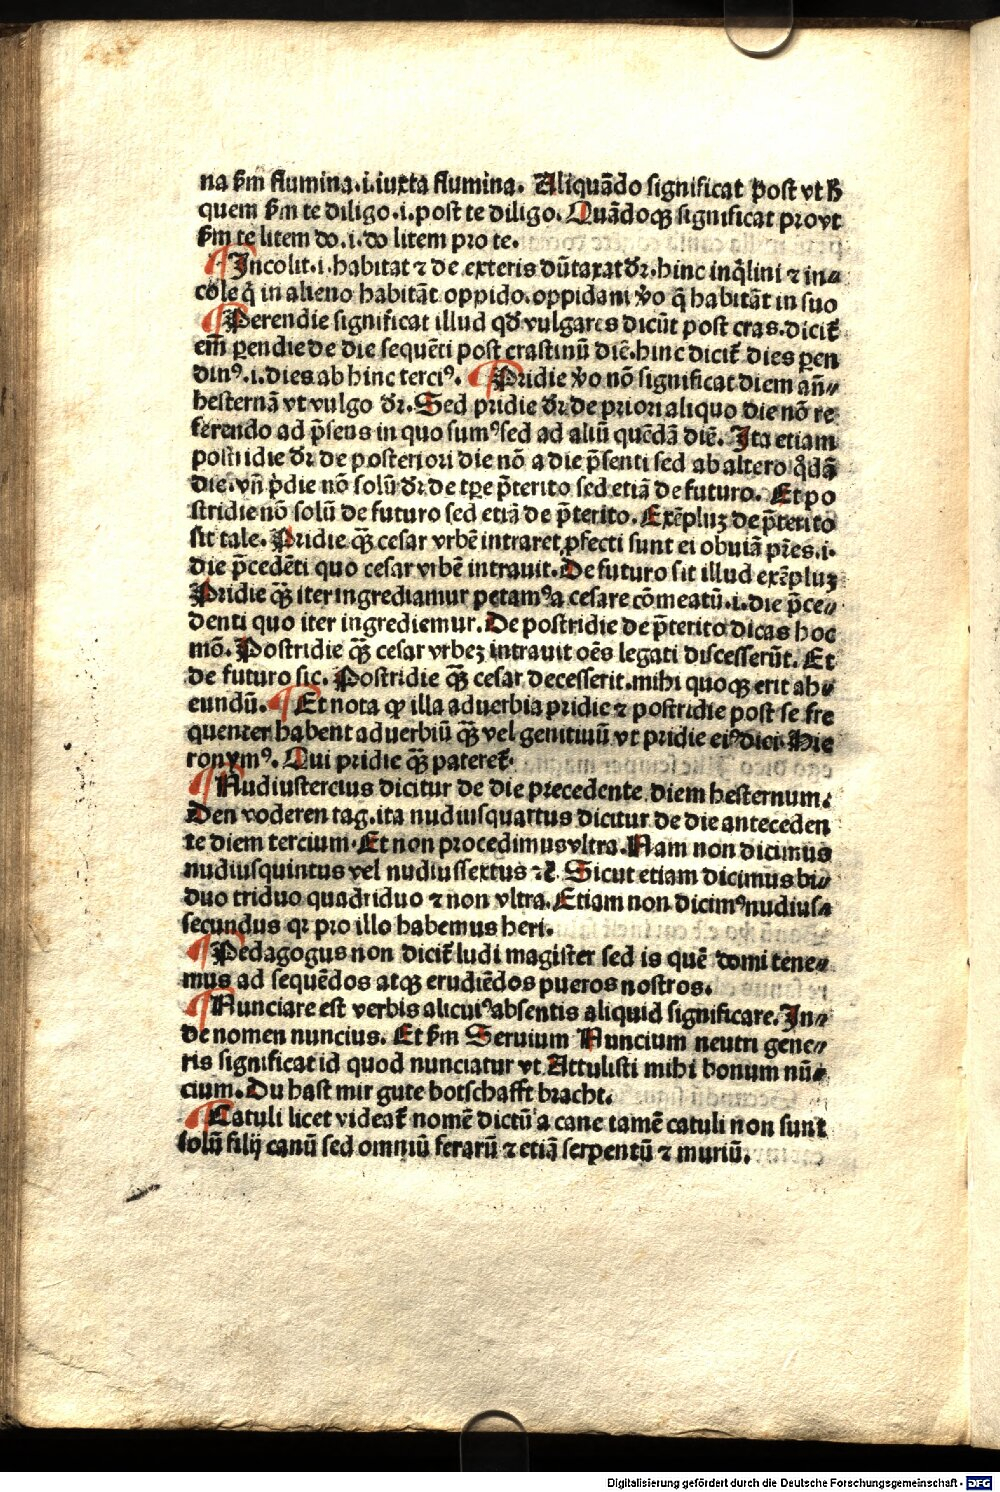 na ẜm flumina.i.iuxta flumina. Aliquādo significat post vt ħ
quem ẜm te diligo.i.post te diligo. Quādoqꝫ significat provt
ẜm te litem do.i.do litem pro te.
¶ Incolit.i.habitat ⁊ de exteris dūtaxat dr̄.hinc inq̇lini ⁊ in⸗
cole q̇ in alieno habitāt oppido.oppidani v̇o q̄ habitāt in suo
¶ Perendie significat illud qđ vulgares dicūt post cras.dicit᷑
em̄ ꝑendie de die sequēti post crastinū diē.hinc dicit᷑ dies ꝑen
dinꝰ.i.dies ab hinc terciꝰ. ¶ Pridie v̇o nō significat diem an̄⸗
hesternā vt vulgo dr̄. Sed pridie dr̄ de priori aliquo die nō re
ferendo ad p̄sens in quo sumꝰ sed ad aliū quēdā diē. Ita etiam
postridie dr̄ de posteriori die nō a die p̄senti sed ab altero q̇dā
die.vn̄ p̄die nō solū dr̄ de tꝑe p̄terito sed etiā de futuro. Et po
stridie nō solū de futuro sed etiā de p̄terito. Exēpluꝫ de p̄terito
sit tale. Pridie qꝫ̄ cesar vrbē intraret ꝓfecti sunt ei obuiā pr̄es.i.
die p̄cedēti quo cesar vrbē intrauit. De futuro sit illud exēpluꝫ
Pridie qꝫ̄ iter ingrediamur petamꝰ a cesare cōmeatū.i.die p̄ce⸗
denti quo iter ingrediemur. De postridie de p̄terito dicas hoc
mō. Postridie qꝫ̄ cesar vrbeꝫ intrauit oēs legati discesserūt. Et
de futuro sic. Postridie qꝫ̄ cesar decesserit.mihi quoqꝫ erit ab⸗
eundū. ¶ Et nota ꝙ illa aduerbia pridie ⁊ postridie post se fre
quenter habent aduerbiū qꝫ̄ vel genitiuū vt pridie eiꝰ diei. Hie
ronymꝰ. Qui pridie qꝫ̄ pateret᷑.
¶ Nudiustercius dicitur de die precedente diem hesternum.
Den voderen tag.ita nudiusquartus dicitur de die anteceden
te diem tercium. Et non procedimus vltra. Nam non dicimus
nudiusquintus vel nudiussextus ⁊c̄. Sicut etiam dicimus bi⸗
duo triduo quadriduo ⁊ non vltra. Etiam non dicimꝰ nudius⸗
secundus qꝛ pro illo habemus heri.
¶ Pedagogus non dicit᷑ ludi magister sed is quē domi tene⸗
mus ad sequēdos atqꝫ erudiēdos pueros nostros.
¶ Nunciare est verbis alicuiꝰ absentis aliquid significare. In⸗
de nomen nuncius. Et ẜm Seruium Nuncium neutri gene⸗
ris significat id quod nunciatur vt Attulisti mihi bonum nū⸗
cium. Du hast mir gute botschafft bracht.
¶ Catuli licet videat᷑ nomē dictū a cane tamē catuli non sunt
solū filij canū sed omniū ferarū ⁊ etiā serpentū ⁊ muriū.
Digitalisierung gefördert durch die Deutsche Forschungsgemeinschaft - DFG